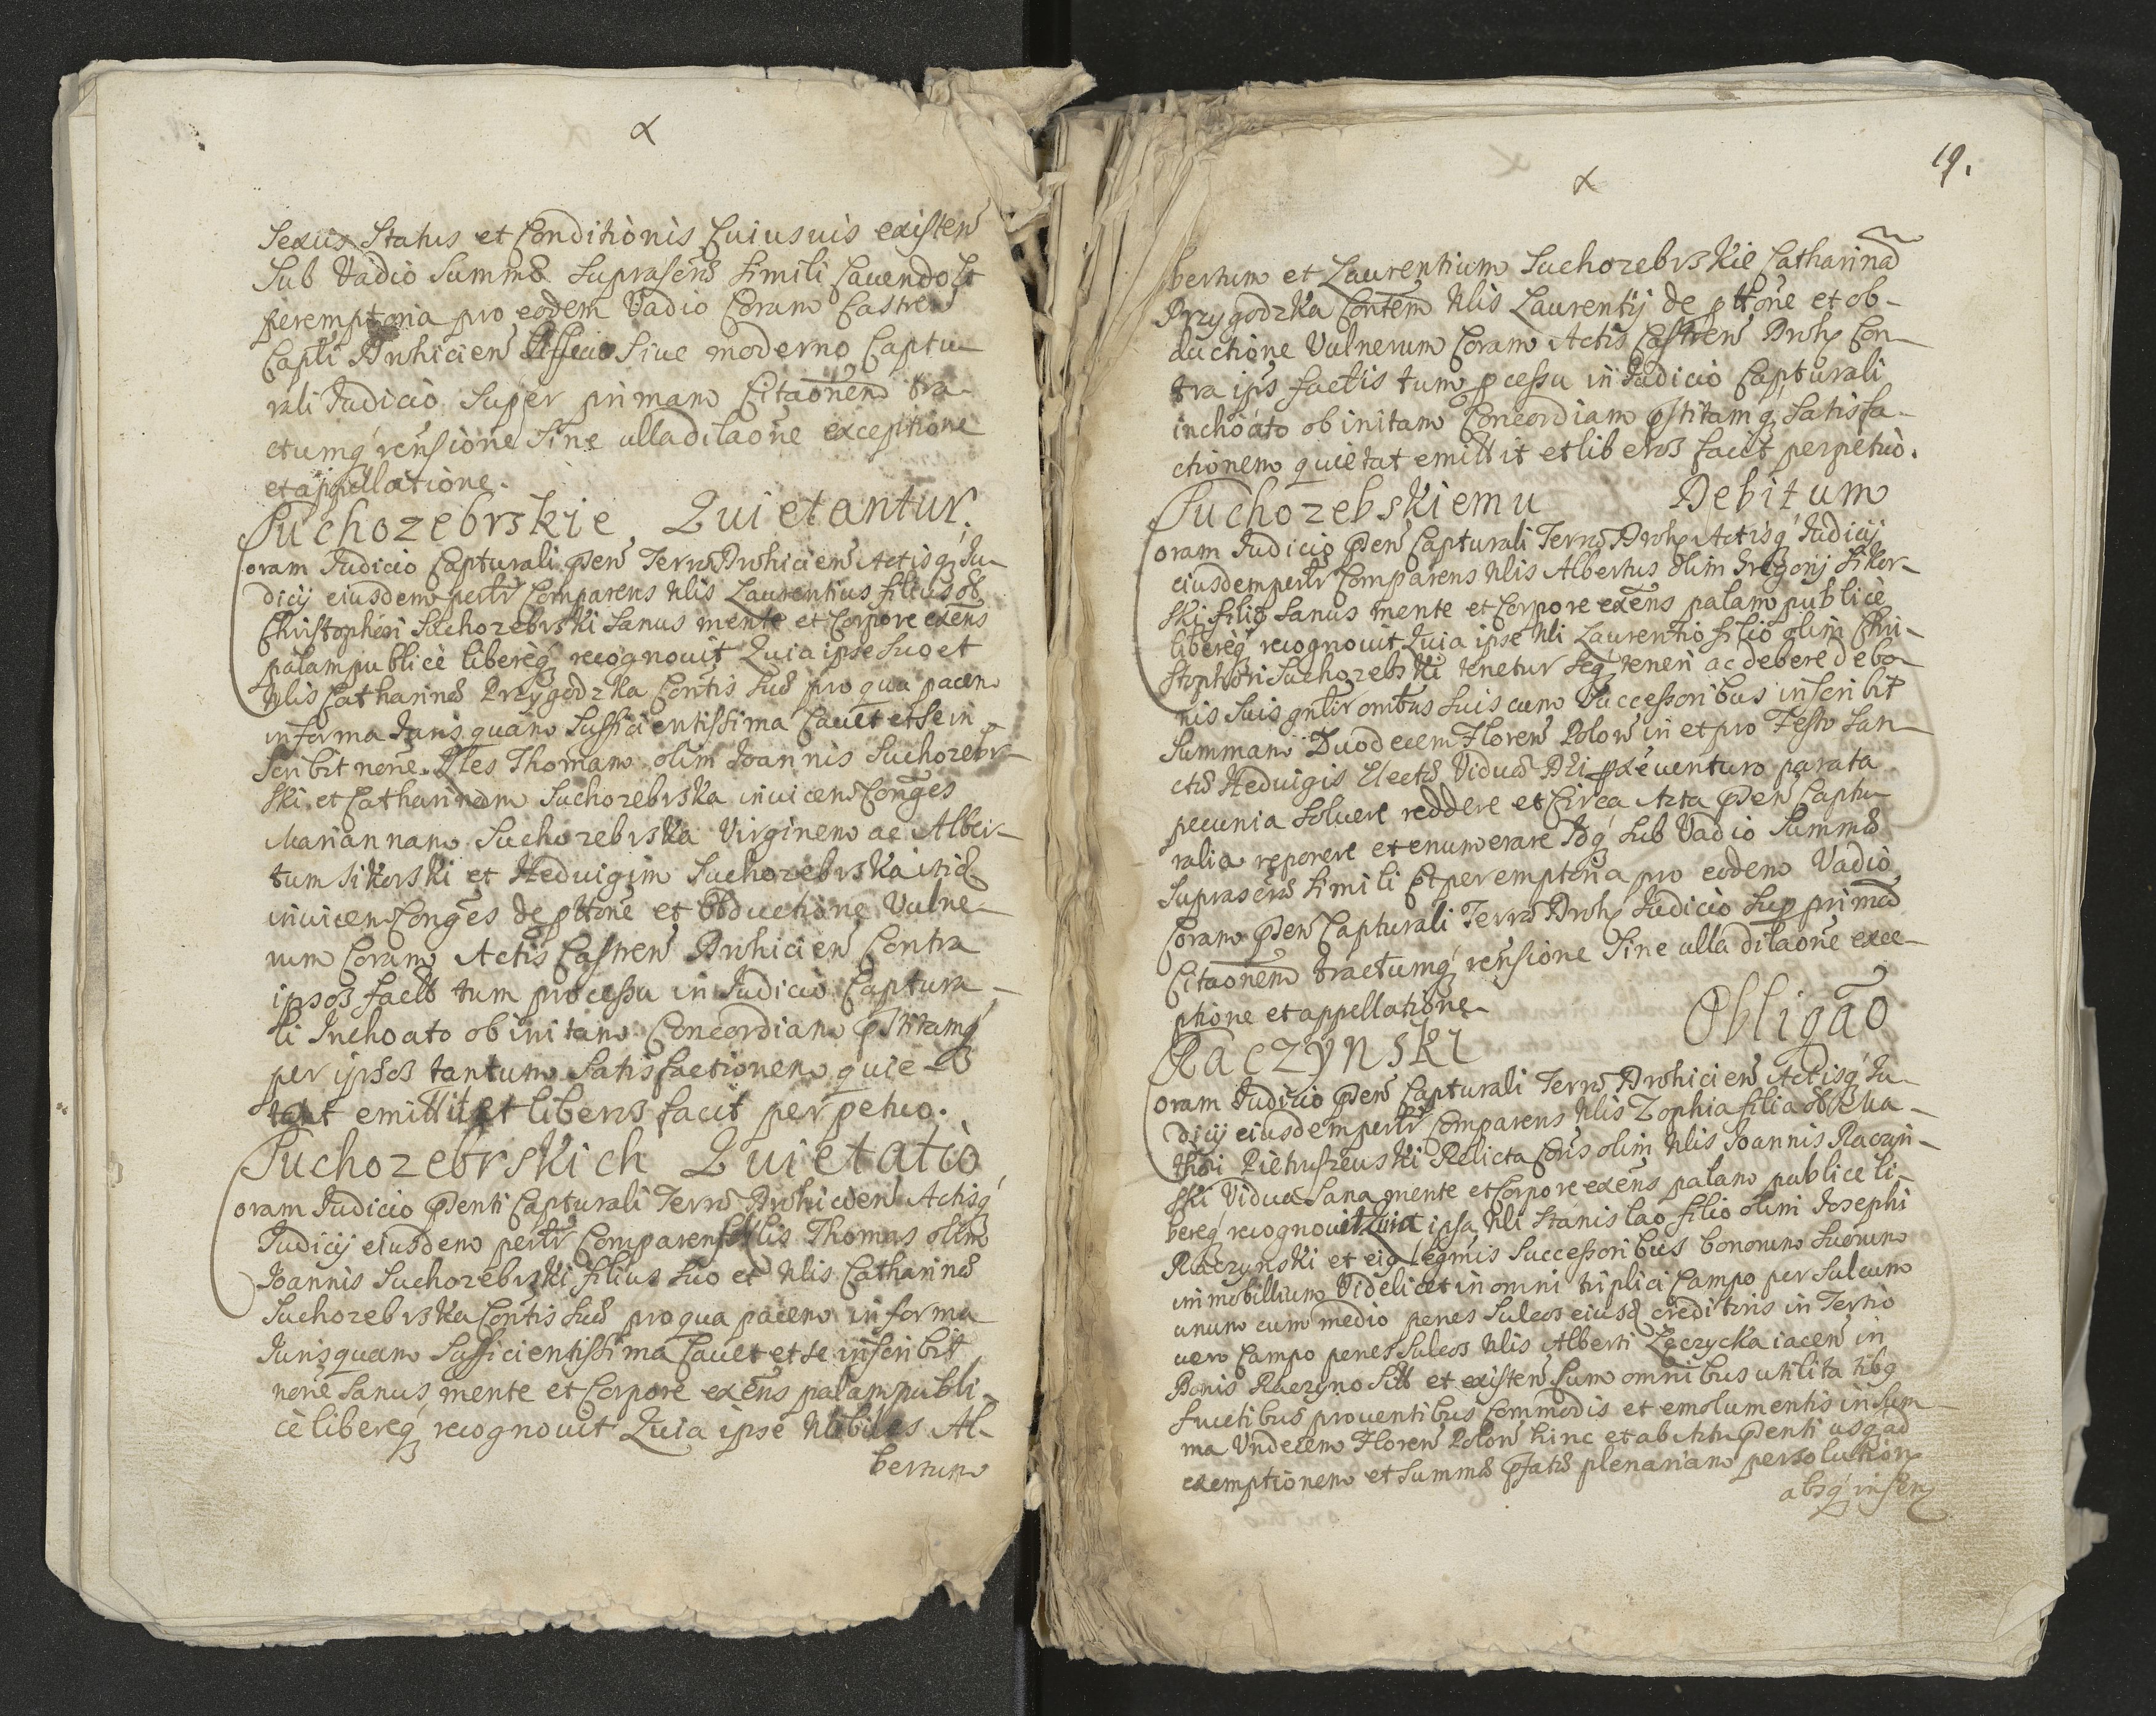 α
Sexus Status et Conditionis Cuiusuis existen̄
Sub Vadio Summæ suprascrẽ simili Cauendo Et
peremptoria pro eodem Vadio Coram Castren̄
Capli Drohicien̄ Officio Siue moderno Captu-
rali Judicio Super primam Citaōnem tra-
ctumq́ reñsione Sine ulla dilaōne exceptione
et appellatione.
Suchozebrskie Quietantur.
Coram Judicio Capturali pñen̄ Terræ Drohicien̄ Actisq́ Ju-
dicij eiusdem persr̃ Comparens Nlis Laurentius filius ol.
Christophori Suchozebrski Sanus mente et Corpore exẽns
palam publicè libereq́ recognouit Quia ipse Suo et
Nlis Catharinæ Przygodzka Contis Suæ pro qua pacem
in forma Juris quam Sufficientissima Cauet et se in-
scribit noñe. Nles Thomam olim Joannis Suchozebr-
ski et Catharinam Suchozebrska inuicem Conges
Mariannam Suchozebrska Virginem ac Alber-
tum Sikorski et Heduigim Suchozebrska itid.
inuicem Conges de pttoñe et Obductione Vulne-
rum Coram Actis Castren̄ Drohicien̄ Contra
ipsos factis tum processu in Judicio Captura-
li Inchoato ob initam Concordiam pstitamq́
per ipsos tantum Satisfactionem quie-
tat emittit et liberos facit perpetuo.
Suchozebrskich Quietatio
Coram Judicio pñenti Capturali Terræ Drohicien̄ Actisq́
Judicij eiusdem persr̃ Comparens Nlis Thomas olim
Joannis Suchozebrski filius Suo et Nlis Catharinæ
Suchozebrska Contis Suæ pro qua pacem in forma
Juris quam Sufficientissima Cauet et se inscribit
noñe Sanus mente et Corpore exẽns palam publi-
cè libereq́ recognouit Quia ipse Nobiles Al-
bertum
19.
α
bertum et Laurentium Suchozebrskie Catharinā
Przygodzka Contem Nlis Laurentij de pttoñe et ob-
ductione Vulnerum Coram Actis Castren̄ Droh. Con-
tra ips̃ factis tum pcessu in Judicio Capturali
inchoato ob initam Concordiam pstitamq́ Satisfa-
ctionem quietat emittit et liberos facit perpetuò.
Suchozebskiemu Debitum
Coram Judicio pñen̄ Capturali Terræ Droh. Actisq́ Judicij
eiusdem persr̃ Comparens Nlis Albertus olim Gregorij Sikor-
ski filiꝰ Sanus mente et Corpore exẽns palam publicè
libereq́ recognouit Quia ipse Nli Laurentio filio olim Chri-
stophori Suchozebski tenetur seq́ teneri ac debere de bo-
nis Suis gnlir omibus Suis cum Successoribus inscribit
Summam Duodecem Floren̄ Polon̄ in et pro Festo San-
ctæ Heduigis Electæ Viduæ Dñi pxe uenturo parata
pecunia Soluere reddere et Circa Acta pñen̄ Captu-
ralia reponere et enumerare Idq́ Sub Vadio Summæ
suprascrẽ Simili Et peremptoria pro eodem Vadio
Coram pñen̄ Capturali Terræ Droh. Judicio Sup primā
Citaōnem tractumq́ reñsione Sine ulla dilaōne exce-
ptione et appellatione
Raczynski Obligāo
Coram Judicio pñen̄ Capturali Terræ Drohicien̄ Actisq́ Ju-
dicij eiusdem persr̃ Comparens Nlis Zophia filia ol. Ma-
thæi Pietruszeuski Relicta Coris olim Nlis Joannis Raczyn-
ski Vidua Sana mente et Corpore exẽns palam publice li-
bereq́ recognouit Quia ipsa Nli Stanislao filio olim Josephi
Raczynski et eiꝰ legmis Successoribus bonorum Suorum
immobilium Videlicet in omni triplici Campo per Sulcum
unum cum medio penes Sulcos eiusd. creditoris in Tertio
uero Campo penes Sulcos Nlis Alberti Zęczycka iacen̄ in
Bonis Raczyno Sitt et existen̄ Cum omnibus utilitatibꝰ
fructibus prouentibus Commodis et emolumentis in Sum-
ma Vndecem Floren̄ Polon̄ hinc et ab Actu pñenti usq́ ad
exemptionem et Summæ pfatæ plenariam persolution.
absq́ inscri.